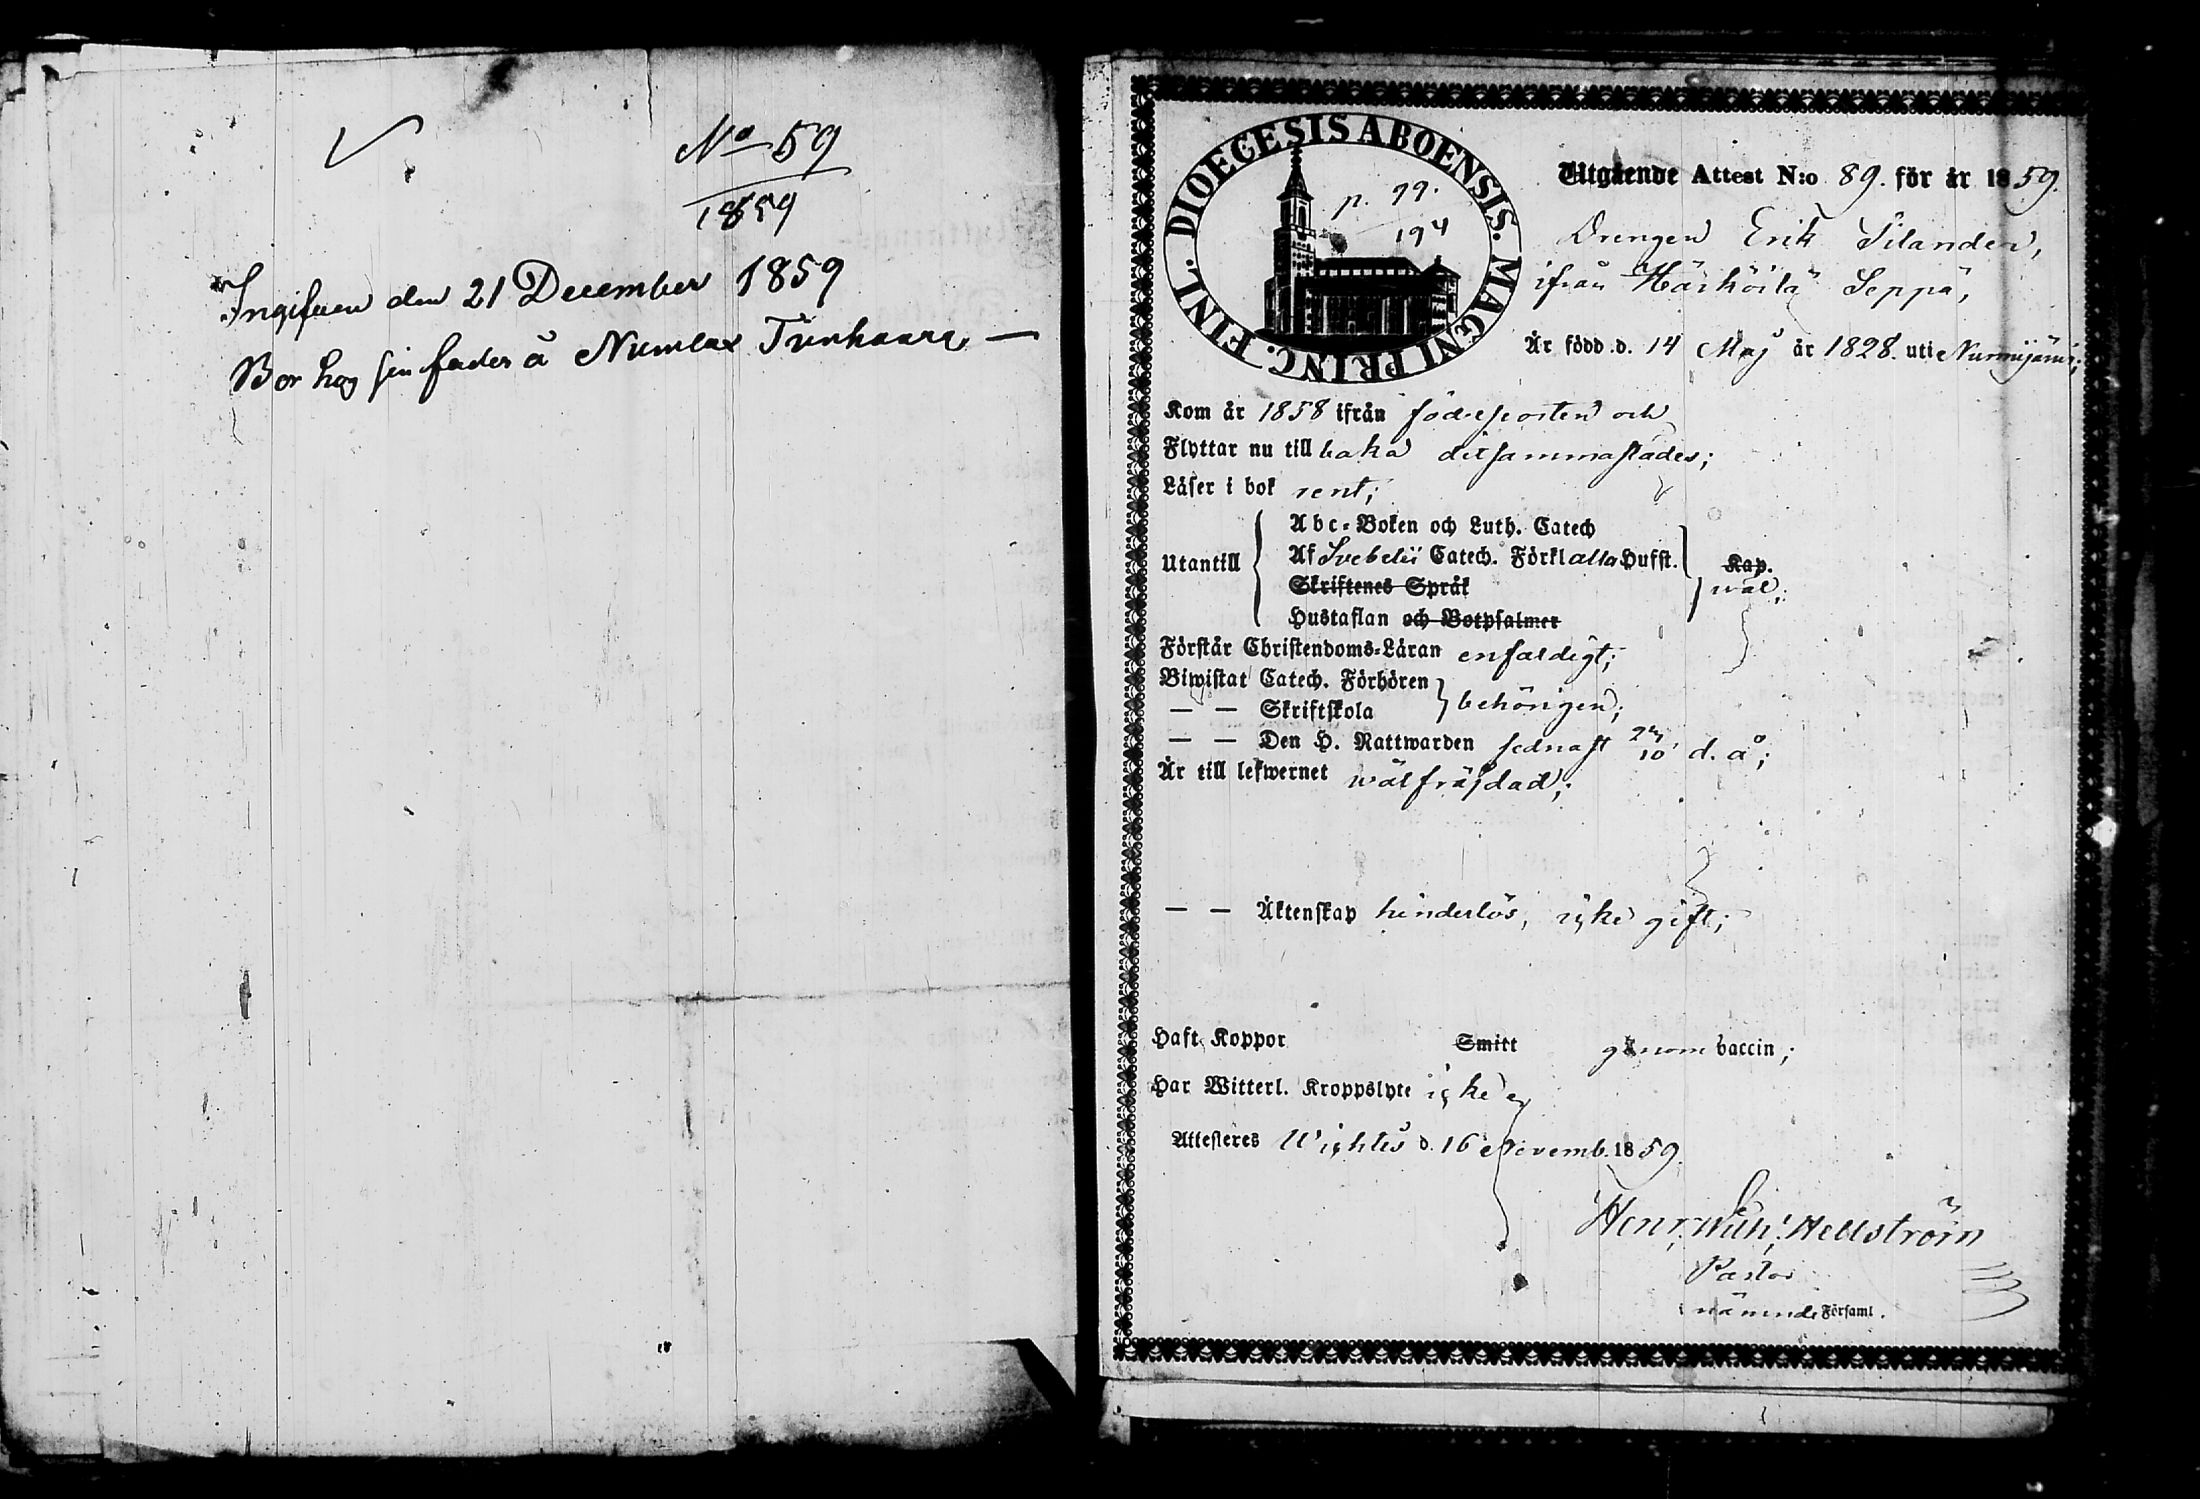 No 59
1859
Ingifven den 21 December 1859
Bor hos sin fader å Numlax Tverhaara —
DIOECESIS ABOENSIS. MAGNI PRINC. FINL.
p. 99.
194
Utgående Attest N:o 89. för år 1859.
Drengen Erik Silander,
ifrån Härköilä Seppä,
Är född d. 14 Maj år 1828. uti Nurmijärvi;
Kom år 1858 ifrån födelseorten och
Flyttar nu till baka ditsammastädes;
Läser i bok rent;
Utantill
Abc-Boken och Luth. Catech
Af Svebelii Catech. Förkl alla Hufst.
Kap.
Skriftenes Språk
wäl;
Hustaflan och Botpsalmer
Förstår Christendoms-Läran enfaldigt;
Biwistat Catech. Förhören
— — Skriftskola
behörigen;
— — Den H. Nattwarden sednast 23/10 d. å;
Är till lefwernet wälfräjdad;
— — Äktenskap hinderlös, icke gift;
Haft Koppor Smitt genom vaccin;
Har Witterl. Kroppslyte icke
Attesteras Wichtis d. 16 Novemb. 1859.
Henr. Wilh. Hellström
Pastor
i nämnde Församl.